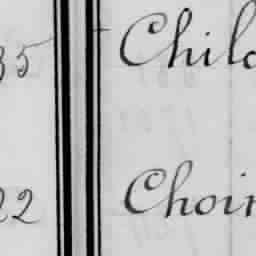 35 Chil
22 Choi